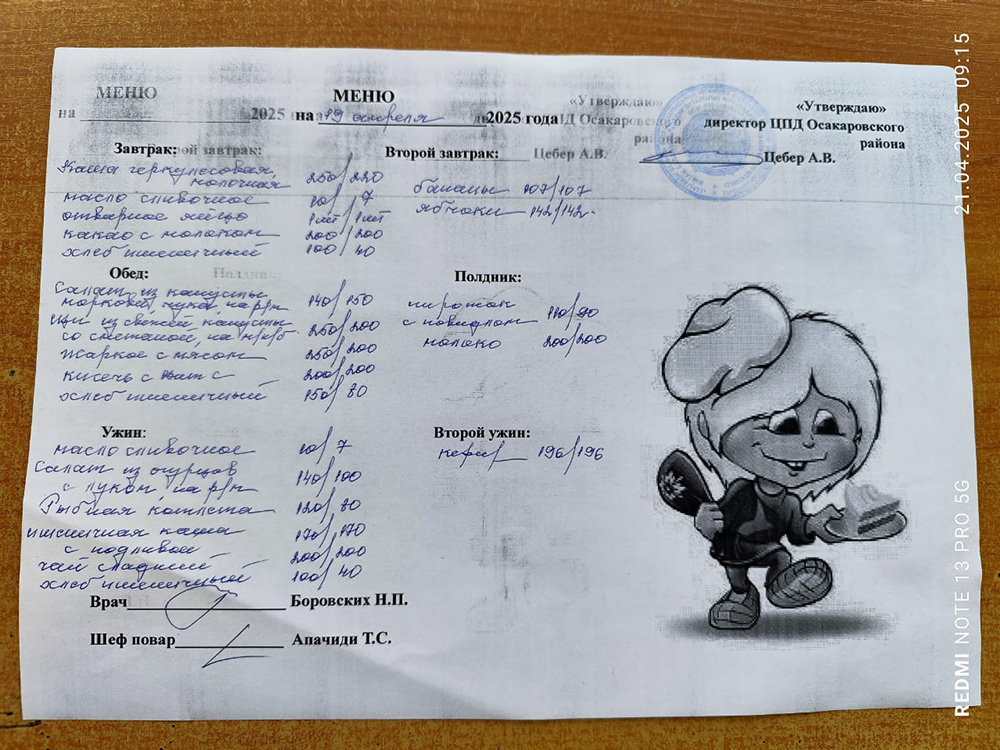 МЕНЮ
МЕНЮ
«Утверждаю»
«Утверждаю»
на
2025
на 19 апреля 2025 года
ЦПД Осакаровского
директор ЦПД Осакаровского
района
района
Завтрак:
завтрак:
Второй завтрак:
Цебер А.В.
Цебер А.В.
Каша геркулесовая,
молочная 250/220
бананы 107/107
масло сливочное 10/7
яблоки 142/142
отварное яйцо 1шт/1шт
какао с молоком 200/200
хлеб пшеничный 100/40
Обед:
Полдник:
Полдник:
Салат из капусты
моркови, лука, на р/м 140/150
пирожок
с повидлом 110/90
щи из свежей капусты
со сметаной, на м/б 250/200
молоко 200/200
Жаркое с мясом 250/200
кисель с 200/200
хлеб пшеничный 150/80
Ужин:
Второй ужин:
масло сливочное 10/7
кефир 196/196
Салат из огурцов
с луком, на р/м 140/100
Рыбная котлета 120/80
пшеничная каша 170/170
с подливой
чай сладкий 200/200
хлеб пшеничный 100/40
Врач Боровских Н.П.
Шеф повар Апачиди Т.С.
REDMI NOTE 13 PRO 5G
21.04.2025 09:15